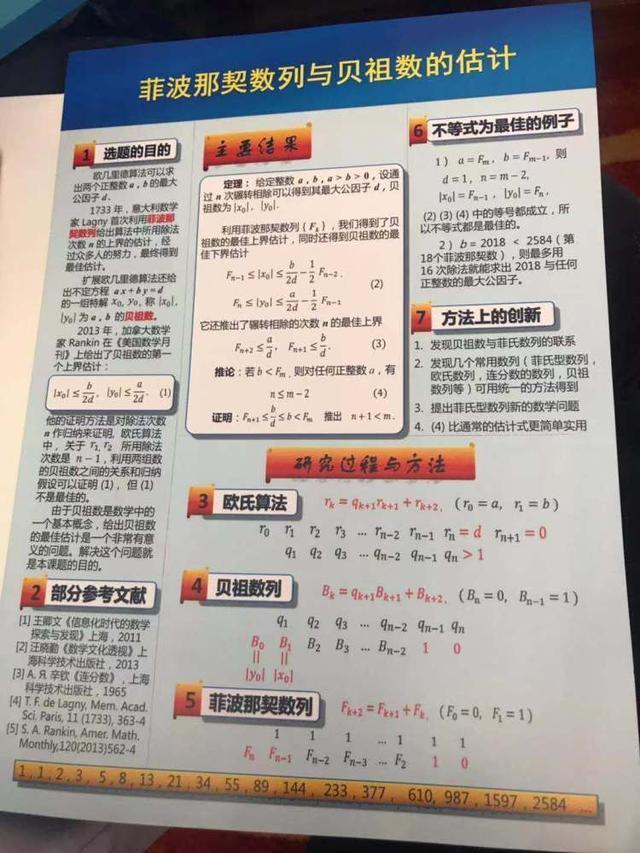 菲波那契数列与贝祖数的估计
1 选题的目的
欧几里德算法可以求
出两个正整数 a, b 的最大
公因子 d.
1733 年，意大利数学
家 Lagny 首次利用菲波那
契数列给出算法中所用除法
次数 n 的上界的估计，经
过众多人的努力，最终得到
最佳估计。
扩展欧几里德算法还给
出不定方程 ax + by = d
的一组特解 x₀, y₀, 称 |x₀|,
|y₀| 为 a, b 的贝祖数。
2013 年，加拿大数学
家 Rankin 在《美国数学月
刊》上给出了贝祖数的第一
个上界估计：
|x₀| ≤ b/2d, |y₀| ≤ a/2d. (1)
他的证明方法是对除法次数
n 作归纳来证明, 欧氏算法
中，关于 r₁, r₂ 所用除法
次数是 n − 1, 利用两组数
的贝祖数之间的关系和归纳
假设可以证明 (1)，但 (1)
不是最佳的。
由于贝祖数是数学中的
一个基本概念，给出贝祖数
的最佳估计是一个非常有意
义的问题。解决这个问题就
是本课题的目的。
2 部分参考文献
[1] 王卿文《信息化时代的数学
探索与发现》上海，2011
[2] 汪晓勤《数学文化透视》上
海科学技术出版社，2013
[3] А. Я 辛钦《连分数》，上海
科学技术出版社，1965
[4] T. F. de Lagny, Mem. Acad.
Sci. Paris, 11 (1733), 363-4
[5] S. A. Rankin, Amer. Math.
Monthly,120(2013)562-4
主要结果
定理：给定整数 a, b, a > b > 0, 设通
过 n 次辗转相除可以得到其最大公因子 d，贝
祖数为 |x₀|, |y₀|.
利用菲波那契数列 {Fₖ}，我们得到了贝
祖数的最佳上界估计，同时还得到贝祖数的最
佳下界估计
Fₙ₋₁ ≤ |x₀| ≤ b/2d − 1/2 Fₙ₋₂ .
(2)
Fₙ ≤ |y₀| ≤ a/2d − 1/2 Fₙ₋₁
它还推出了辗转相除的次数 n 的最佳上界
Fₙ₊₂ ≤ a/d, Fₙ₊₁ ≤ b/d. (3)
推论：若 b < Fₘ, 则对任何正整数 a，有
n ≤ m − 2 (4)
证明：Fₙ₊₁ ≤ b/d ≤ b < Fₘ 推出 n + 1 < m .
6 不等式为最佳的例子
1 ) a = Fₘ, b = Fₘ₋₁, 则
d = 1, n = m − 2,
|x₀| = Fₙ₋₁ , |y₀| = Fₙ,
(2) (3) (4) 中的等号都成立，所
以不等式都是最佳的。
2 ) b = 2018 < 2584 (第
18个菲波那契数)，则最多用
16 次除法就能求出 2018 与任何
正整数的最大公因子。
7 方法上的创新
1. 发现贝祖数与菲氏数列的联系
2. 发现几个常用数列（菲氏型数列，
欧氏数列，连分数的数列，贝祖
数列等）可用统一的方法得到
3. 提出菲氏型数列新的数学问题
4. (4) 比通常的估计式更简单实用
研究过程与方法
3 欧氏算法 rₖ = qₖ₊₁rₖ₊₁ + rₖ₊₂, ( r₀ = a, r₁ = b )
r₀ r₁ r₂ r₃ … rₙ₋₂ rₙ₋₁ rₙ = d rₙ₊₁ = 0
q₁ q₂ q₃ … qₙ₋₂ qₙ₋₁ qₙ > 1
4 贝祖数列 Bₖ = qₖ₊₁Bₖ₊₁ + Bₖ₊₂, ( Bₙ = 0, Bₙ₋₁ = 1 )
q₁ q₂ q₃ … qₙ₋₂ qₙ₋₁ qₙ
B₀ B₁ B₂ B₃ … Bₙ₋₂ 1 0
|| ||
|y₀| |x₀|
5 菲波那契数列 Fₖ₊₂ = Fₖ₊₁ + Fₖ, ( F₀ = 0, F₁ = 1 )
1 1 1 … 1 1 1
Fₙ Fₙ₋₁ Fₙ₋₂ Fₙ₋₃ … F₂ 1 0
1 , 1 , 2 , 3 , 5 , 8 , 13 , 21 , 34 , 55 , 89 , 144 , 233 , 377 , 610, 987 , 1597 , 2584 ...